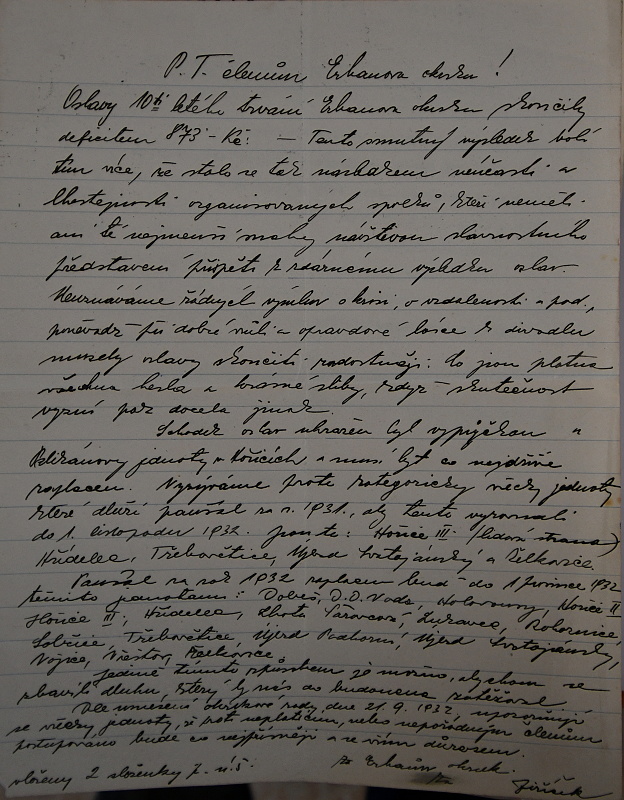 P. T. členům Erbanova okrsku!
Oslavy 10ti letého trvání Erbanova okrsku skončily
deficitem 873 - Kč. — Tento smutný výsledek bolí
tím více, že stalo se tak následkem neúčasti a
lhostejnosti organisovaných spolků, kteří neměli
ani té nejmenší snahy návštěvou slavnostního
představení přispěti k zdárnému výsledku oslav.
Neuznáváme žádných výmluv o krisi, o vzdálenosti a pod.,
poněvadž při dobré vůli a opravdové lásce k divadlu
musely oslavy skončiti radostněji. Co jsou platna
všechna hesla a krásné sliby, když skutečnost
vyzní pak docela jinak.
Schodek oslav uhrazen byl vypůjčkou u
jednoty v Hořicích a musí být co nejdříve
zaplacen. Vyzýváme proto kategoricky všechny jednoty
které dluží paušál za r. 1931., aby tento vyrovnali
do 1. listopadu 1932. jsou to: Hořice III. (lidová strana)
Hřídelec, Třebovětice, Újezd Svatojánský a Želkovice.
Paušál na rok 1932 zaplacen buď do 1 prosince 1932
těmito jednotami: Dobeš, D.D. Voda, Holovousy, Hořice II
Hořice III, Hřídelec, Lhota Šárovcova, Lužany, Rohoznice,
Sobčice, Třebovětice, Újezd Podhorní, Újezd Svatojánský,
Vojice, Vřešťov, Želkovice.
Jedině tímto způsobem je možno, abychom se
zbavili dluhu, který by nás do budoucna zatěžoval.
Dle usnesení okrskové rady, dne 21. 9. 1932, upozorňují
se všechny jednoty, že proti neplatícím, nebo nepořádným členům
postupováno bude co nejpřísněji a se vším důrazem.
vloženy 2 složenky Za Erbanův okrsek.
Jirásek